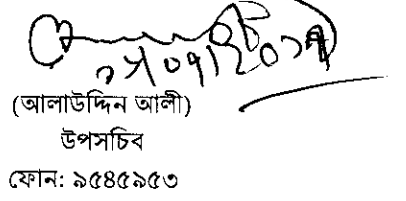 (আলাউদ্দিন আলী)
উপসচিব
ফোন: ৯৫৪৫৯৫৩